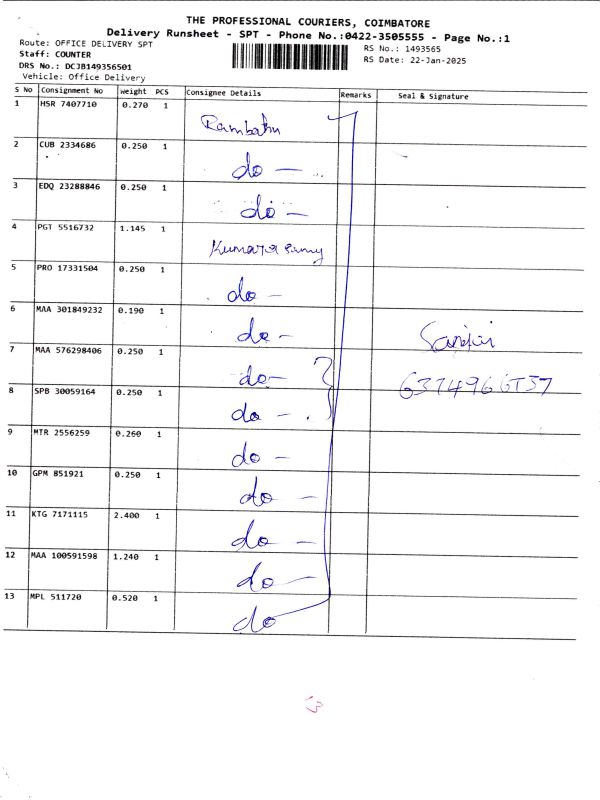 THE PROFESSIONAL COURIERS, COIMBATORE
Delivery Runsheet - SPT - Phone No.:0422-3505555 - Page No.:1
Route: OFFICE DELIVERY SPT
Staff: COUNTER
DRS No.: DCJB149356501
Vehicle: Office Delivery
RS No.: 1493565
RS Date: 22-Jan-2025
S No Consignment No Weight PCS Consignee Details Remarks Seal & Signature
1 HSR 7407710 0.270 1 Rambabu
2 CUB 2334686 0.250 1 do —
3 EDQ 23288846 0.250 1 do —
4 PGT 5516732 1.145 1 Kumarasamy
5 PRO 17331504 0.250 1 do -
6 MAA 301849232 0.190 1 do -
7 MAA 576298406 0.250 1 do -
8 SPB 30059164 0.250 1 do -
9 MTR 2556259 0.260 1 do -
10 GPM 851921 0.250 1 do -
11 KTG 7171115 2.400 1 do -
12 MAA 100591598 1.240 1 do -
13 MPL 511720 0.520 1 do
13